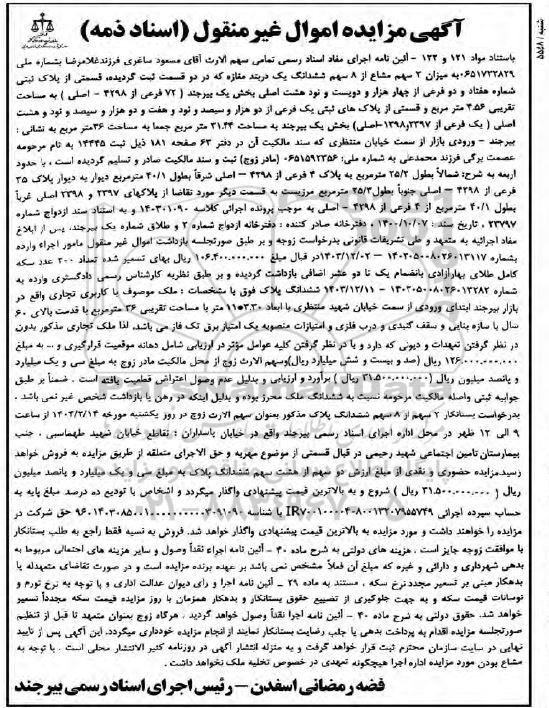 آگهی مزایده اموال غیرمنقول (اسناد ذمه)
شنبه / ۵۵۸
باستناد مواد ۱۲۱ و ۱۲۲ - آئین نامه اجرای مفاد اسناد رسمی تمامی سهم الارث آقای مسعود ساغری فرزندغلامرضا بشماره ملی
۰۶۵۱۷۳۲۸۲۹ به میزان ۲ سهم مشاع از ۸ سهم ششدانگ یک دربند مغازه که در دو قسمت ثبت گردیده، قسمتی از پلاک ثبتی
شماره هفتاد و دو فرعی از چهار هزار و دویست و نود هشت اصلی بخش یک بیرجند ( ۷۲ فرعی از ۴۲۹۸ - اصلی ) به مساحت
تقریبی ۴.۵۶ متر مربع و قسمتی از پلاک های ثبتی یک فرعی از دو هزار و سیصد و نود و هفت و دو هزار و سیصد و نود و هشت
اصلی ( یک فرعی از ۲۳۹۷و۱۳۹۸-اصلی) بخش یک بیرجند به مساحت ۳۱.۴۴ متر مربع جمعا به مساحت ۳۶متر مربع به نشانی :
بیرجند - ورودی بازار از سمت خیابان منتظری که سند مالکیت آن در دفتر ۶۳ صفحه ۱۸۱ ذیل ثبت ۱۴۴۴۵ به نام مرحومه
عصمت برگی فرزند محمدعلی به شماره ملی: ۰۶۵۱۵۹۲۳۵۶ (مادر زوج) ثبت و سند مالکیت صادر و تسلیم گردیده است ، با حدود
اربعه به شرح: شمالاً بطول ۲۵/۲ مترمربع به پلاک ۴ فرعی از ۴۲۹۸ – اصلی شرقاً بطول ۴۰/۱ مترمربع دیوار به دیوار پلاک ۳۵
فرعی از ۴۲۹۸ – اصلی جنوباً بطول۲۵/۳ مترمربع مرزیست به قسمت دیگر مورد تقاضا از پلاکهای ۲۳۹۷ و ۲۳۹۸ اصلی غرباً
بطول ۴۰/۱ مترمربع از ۴ فرعی از ۴۲۹۸ - اصلی به موجب پرونده اجرائی کلاسه ۱۴۰۳۰۱۰۹۰ و به استناد سند ازدواج شماره
۲۳۷۹۷ ، تاریخ سند: ۱۴۰۰/۱۰/۰۷ ، دفترخانه صادر کننده : دفترخانه ازدواج شماره ۲ و طلاق شماره یک بیرجند، پس از ابلاغ
مفاد اجرائیه به متعهد و طی تشریفات قانونی بدرخواست زوجه و بر طبق صورتجلسه بازداشت اموال غیر منقول مامور اجراء وارده
بشماره ۱۴۰۳۰۵۰۰۸۰۲۶۰۱۳۱۱۷–۱۴۰۳/۱۲/۰۲در قبال مبلغ ۱۰۶.۴۰۰.۰۰۰.۰۰۰ ریال بهای تسعیر شده تعداد ۲۰۰ عدد سکه
کامل طلای بهارآزادی بانضمام یک تا دو عشر اضافی بازداشت گردیده و بر طبق نظریه کارشناس رسمی دادگستری وارده به
شماره ۱۴۰۳۰۵۰۰۸۰۲۶۰۱۳۲۸۲ – ۱۴۰۳/۱۲/۱۱ ششدانگ پلاک فوق با مشخصات : ملک موصوف با کاربری تجاری واقع در
بازار بیرجند ابتدای ورودی از سمت خیابان شهید منتظری با ابعاد ۳.۳۰×۱۱ متر با مساحت تقریبی ۳۶ مترمربع با قدمت بالای ۶۰
سال با سازه بنایی و سقف گنبدی و درب فلزی و امتیازات منصوبه یک امتیاز برق تک فاز می باشد، لذا ملک تجاری مذکور بدون
در نظر گرفتن تعهدات و دیونی که دارد و با در نظر گرفتن کلیه عوامل مؤثر در ارزیابی شامل دهانه موقعیت قرارگیری و ... به مبلغ
۱۲۶.۰۰۰.۰۰۰.۰۰۰ ریال (صد و بیست و شش میلیارد ریال)وسهم الارث زوج از محل مالکیت مادر زوج به مبلغ سی و یک میلیارد
و پانصد میلیون ریال (۳۱.۵۰۰.۰۰۰.۰۰۰ ریال ) برآورد و ارزیابی و بدلیل عدم وصول اعتراض قطعیت یافته است . ضمناً بر طبق
جوابیه ثبتی واصله مالکیت مرحومه نسبت به ششدانگ ملک محرز بوده و بدلیل اینکه در رهن یا بازداشت شخص غیر نمی باشد .
بدرخواست بستانکار ۲ سهم از ۸ سهم ششدانگ پلاک مذکور بعنوان سهم الارث زوج در روز یکشنبه مورخه ۱۴۰۴/۲/۱۴ از ساعت
۹ الی ۱۲ ظهر در محل اداره اجرای اسناد رسمی بیرجند واقع در خیابان پاسداران : تقاطع خیابان شهید طهماسبی ، جنب
بیمارستان تامین اجتماعی شهید رحیمی در قبال قسمتی از موضوع مهریه و حق الاجرای متعلقه از طریق مزایده به فروش خواهد
رسید.مزایده حضوری و نقدی از مبلغ ارزش دو سهم از هشت سهم ششدانگ پلاک به مبلغ سی و یک میلیارد و پانصد میلیون
ریال ( ۳۱.۵۰۰.۰۰۰.۰۰۰ ریال ) شروع و به بالاترین قیمت پیشنهادی واگذار میگردد و اشخاص با تودیع ده درصد مبلغ پایه به
حساب سپرده اجرائی با شناسه حق شرکت در
مزایده را خواهند داشت و مورد مزایده به بالاترین قیمت پیشنهادی واگذار خواهد شد. فروش به نسیه فقط راجع به طلب بستانکار
با موافقت زوجه جایز است . هزینه های دولتی به شرح ماده ۴۰ - آئین نامه اجرا نقداً وصول و سایر هزینه های احتمالی مربوط به
بدهی شهرداری و دارائی و غیره که مبلغ آن فعلاً مشخص نمی باشد بر عهده برنده مزایده است و در صورت تقاضای متعهدله یا
بدهکار مبنی بر تسعیر مجدد نرخ سکه ، مستند به ماده ۲۹ - آئین نامه اجرا و رای دیوان عدالت اداری و با توجه به نرخ تورم و
نوسانات قیمت سکه و به جهت جلوگیری از تضییع حقوق بستانکار و بدهکار همزمان با روز مزایده قیمت سکه مجدداً تسعیر
خواهد شد. حقوق دولتی به شرح ماده ۴۰ - آئین نامه اجرا نقداً وصول خواهد گردید . هرگاه زوج بعنوان متعهد تا قبل از تنظیم
صورتجلسه مزایده اقدام به پرداخت بدهی یا جلب رضایت بستانکار نمایند از انجام مزایده خودداری میگردد. این آگهی پس از تایید
نهایی در سایت سازمان محترم ثبت قرار خواهد گرفت و به منزله انتشار آگهی در روزنامه کثیر الانتشار محلی است . با توجه به
مشاع بودن مورد مزایده اداره اجرا هیچگونه تعهدی در خصوص تخلیه ملک نخواهد داشت .
فضه رمضانی اسفدن – رئیس اجرای اسناد رسمی بیرجند